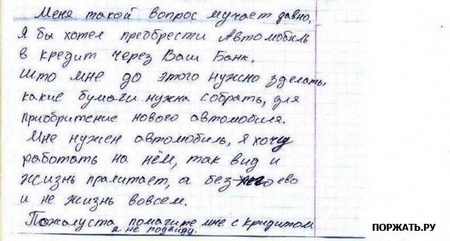 Меня такой вопрос мучает давно,
Я бы хотел преобрести Автомобиль
в кредит через Ваш Банк.
Што мне до этого нужно зделать,
какие бумаги нужна собрать, для
приобритение нового автомобиля.
Мне нужен автомобиль, я хочу
работать на нём, так вид и
жизнь пралитает, а без ево
и не жизнь вовсем.
Пожалуста помагите мне с кридитом
я не подвиду.
ПОРЖАТЬ.РУ